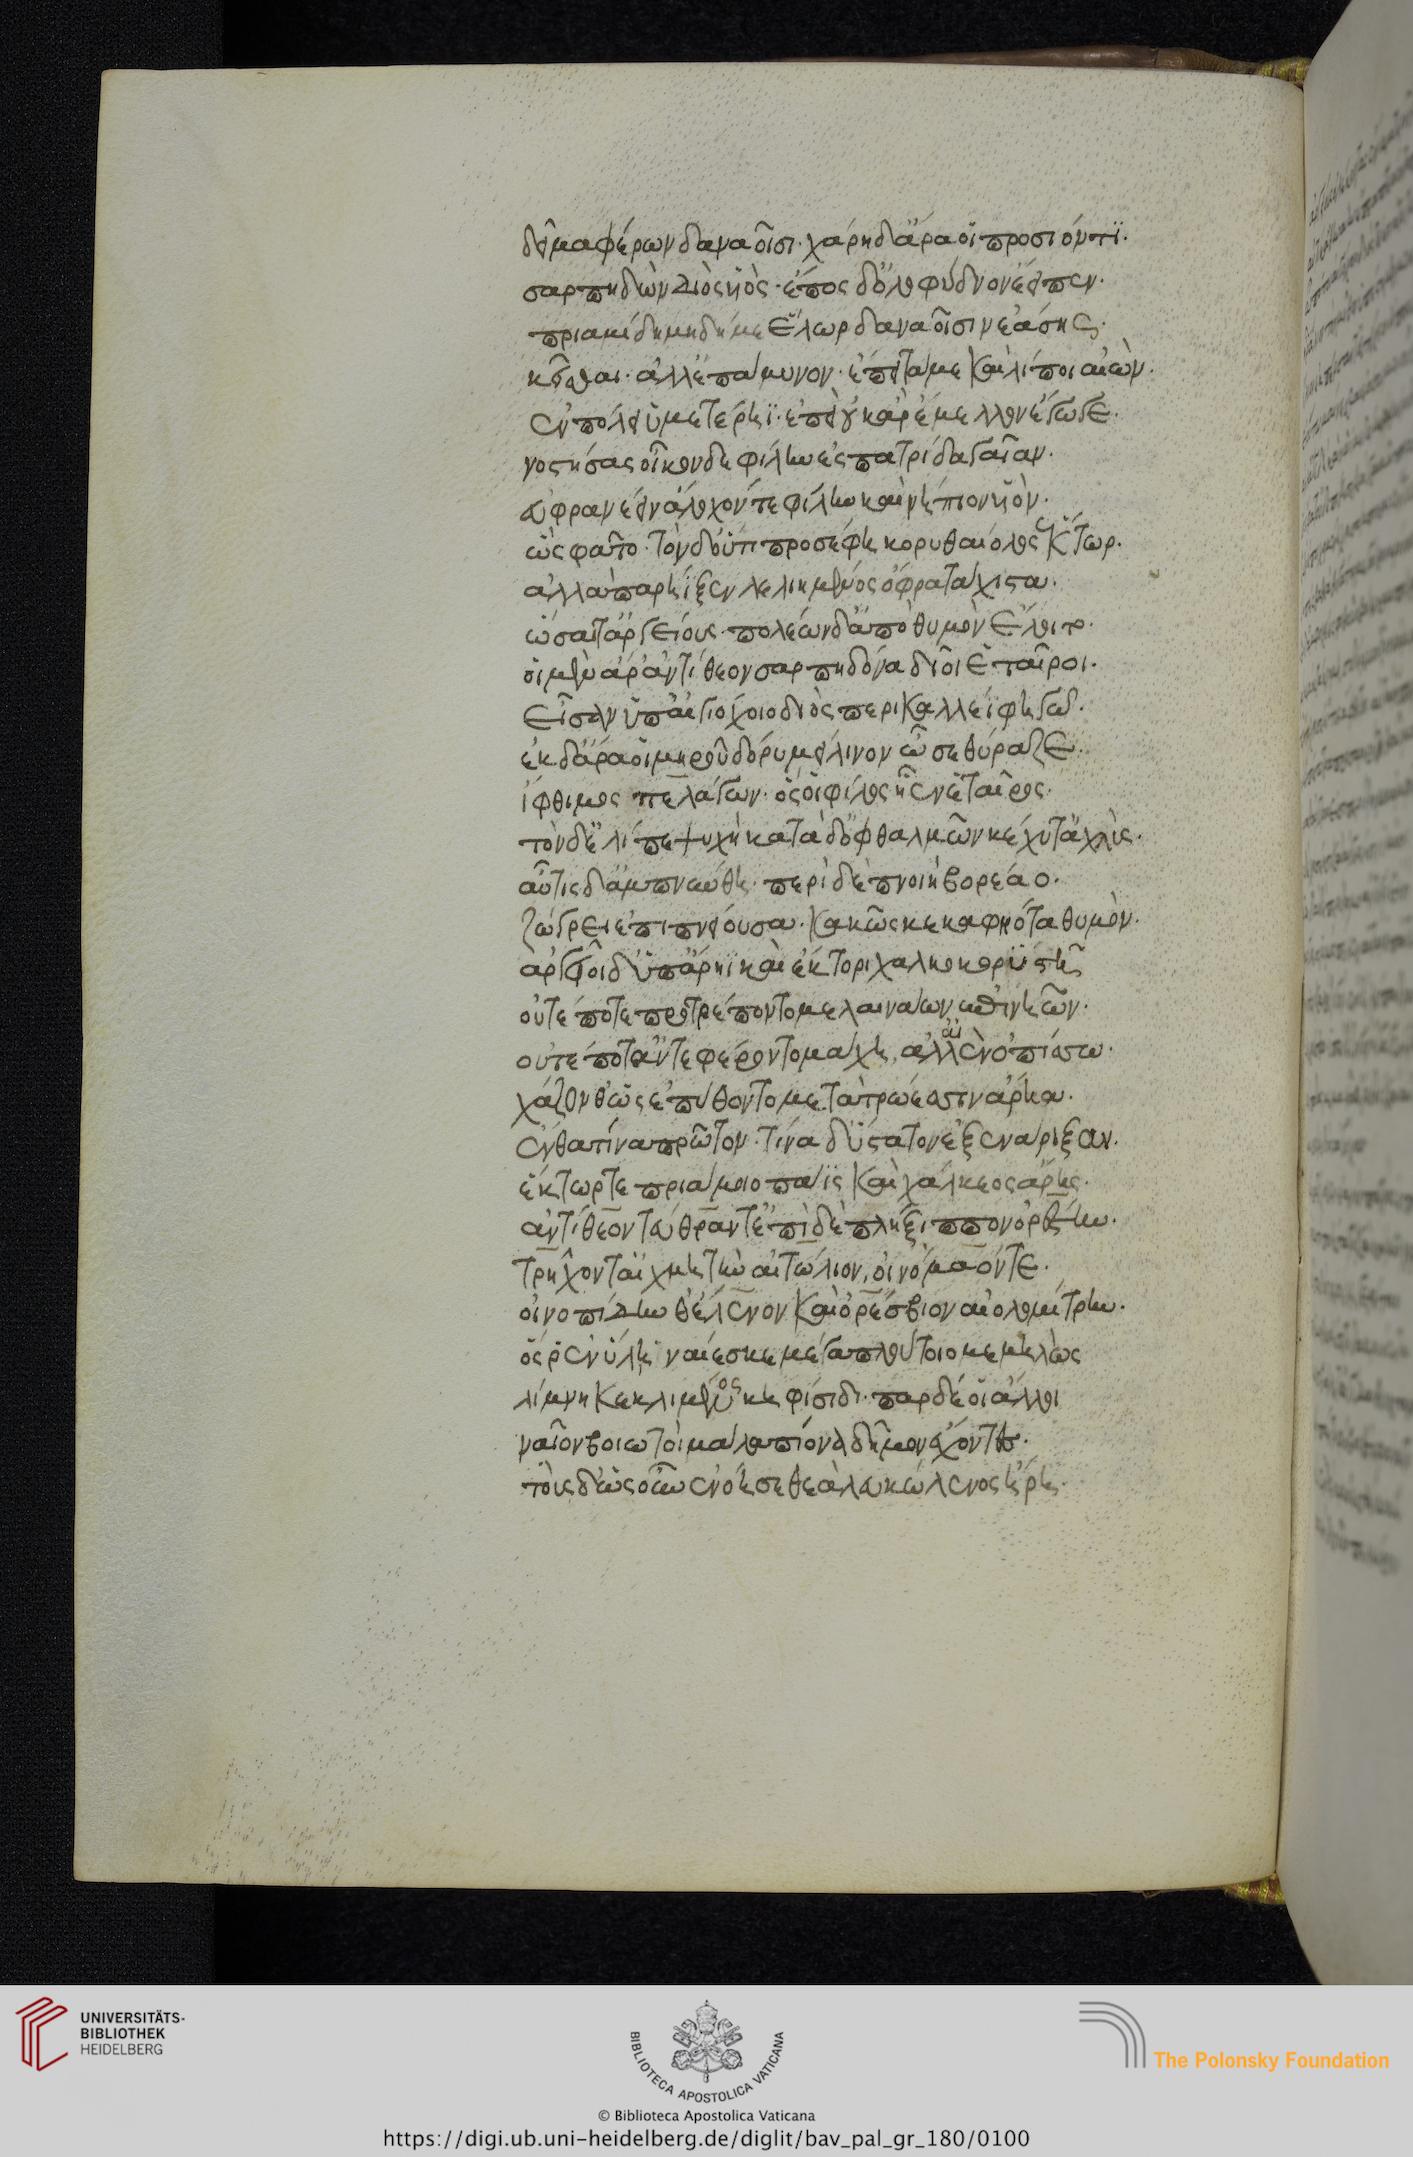 δεῖμα φέρων δαναοῖσι· χάρη δ' ἄρα οἱ προσιόντι·
σαρπηδὼν διὸς υἱὸς· ἔπος δ' ὀλοφυδνὸν ἔειπεν·
πριαμίδη μὴ δή με ἕλωρ δαναοῖσιν ἐάσῃς
κεῖσθαι· ἀλλ' ἐπάμυνον· ἔπειτά με καὶ λίποι αἰὼν·
ἐν πόλει ὑμετέρῃ· ἐπεὶ οὐκ ἄρ' ἔμελλον ἔγωγε
νοστήσας οἶκόνδε φίλην ἐς πατρίδα γαῖαν·
εὐφρανέειν ἄλοχόν τε φίλην καὶ νήπιον υἱὸν·
ὣς φάτο· τὸν δ' οὔτι προσέφη κορυθαίολος ἕκτωρ·
ἀλλὰ παρήϊξεν λελιημένος ὄφρα τάχιστα·
ὤσαιτ' ἀργείους· πολέων δ' ἀπὸ θυμὸν ἕλοιτο·
οἱ μὲν ἄρ' ἀντίθεον σαρπηδόνα δῖοι ἑταῖροι·
εἷσαν ὑπ' αἰγιόχοιο διὸς περικαλλέϊ φηγῶ·
ἐκ δ' ἄρα οἱ μηροῦ δόρυ μείλινον ὦσε θύραζε
ἴφθιμος πελάγων· ὅς οἱ φίλος ἦεν ἑταῖρος·
τὸν δ' ἔλιπε ψυχὴ κατὰ δ' ὀφθαλμῶν κέχυτ' ἀχλὺς·
αὖτις δ' ἀμπνύνθη· περὶ δὲ πνοιὴ βορέαο·
ζώγρει ἐπιπνείουσα· κακῶς κεκαφηότα θυμὸν·
ἀργεῖοι δ' ὑπ' ἄρηϊ καὶ ἕκτορι χαλκοκορυστῇ
οὔτέ ποτε προτρέποντο μελαινάων ἐπὶ νηῶν·
οὔτέ ποτ' ἀντεφέροντο μάχῃ, ἀλλ' αἰὲν ὀπίσσω·
χάζονθ' ὡς ἐπύθοντο μετὰ τρώεσσιν ἄρηα·
ἔνθα τίνα πρῶτον· τίνα δ' ὕστατον ἐξενάριξαν·
ἕκτωρ τε πριάμοιο πάϊς καὶ χάλκεος ἄρης·
ἀντίθεον τεύθραντ' ἐπὶ δὲ πλήξιππον ὀρέστην·
τρῆχόν τ' αἰχμητὴν αἰτώλιον, οἰνόμαόν τε·
οἰνοπίδην θ' ἕλενον καὶ ὀρέσβιον αἰολομίτρην·
ὅς ῥ' ἐν ὕλῃ ναίεσκε μέγα πλούτοιο μεμηλὼς
λίμνῃ κεκλιμένος κηφισίδι· πὰρ δέ οἱ ἄλλοι
ναῖον βοιωτοὶ μάλα πίονα δῆμον ἔχοντες·
τοὺς δ' ὡς οὖν ἐνόησε θεὰ λευκώλενος ἥρη·
UNIVERSITÄTS-
BIBLIOTHEK
HEIDELBERG
BIBLIOTECA APOSTOLICA VATICANA
The Polonsky Foundation
© Biblioteca Apostolica Vaticana
https://digi.ub.uni-heidelberg.de/diglit/bav_pal_gr_180/0100